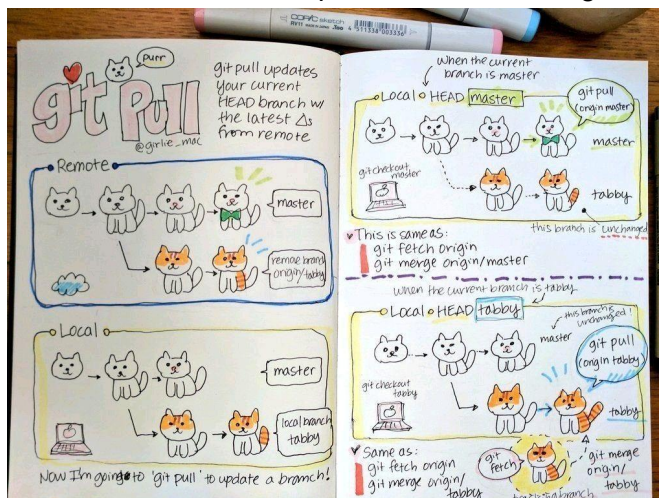 COPIC sketch
purr
git Pull
@girlie_mac
git pull updates
your current
HEAD branch w/
the latest Δs
from remote
Remote
master
remote branch
origin/tabby
Local
master
local branch
tabby
Now I'm going to 'git pull' to update a branch!
when the current
branch is master
Local HEAD master
git pull
(origin master)
master
git checkout
master
tabby
this branch is unchanged
This is same as:
git fetch origin
git merge origin/master
when the current branch is tabby
Local HEAD tabby
this branch is
unchanged!
master
git pull
(origin tabby)
git checkout
tabby
tabby
Same as:
git fetch origin
git merge origin/
tabby
git
fetch
git merge
origin/
tabby
branch